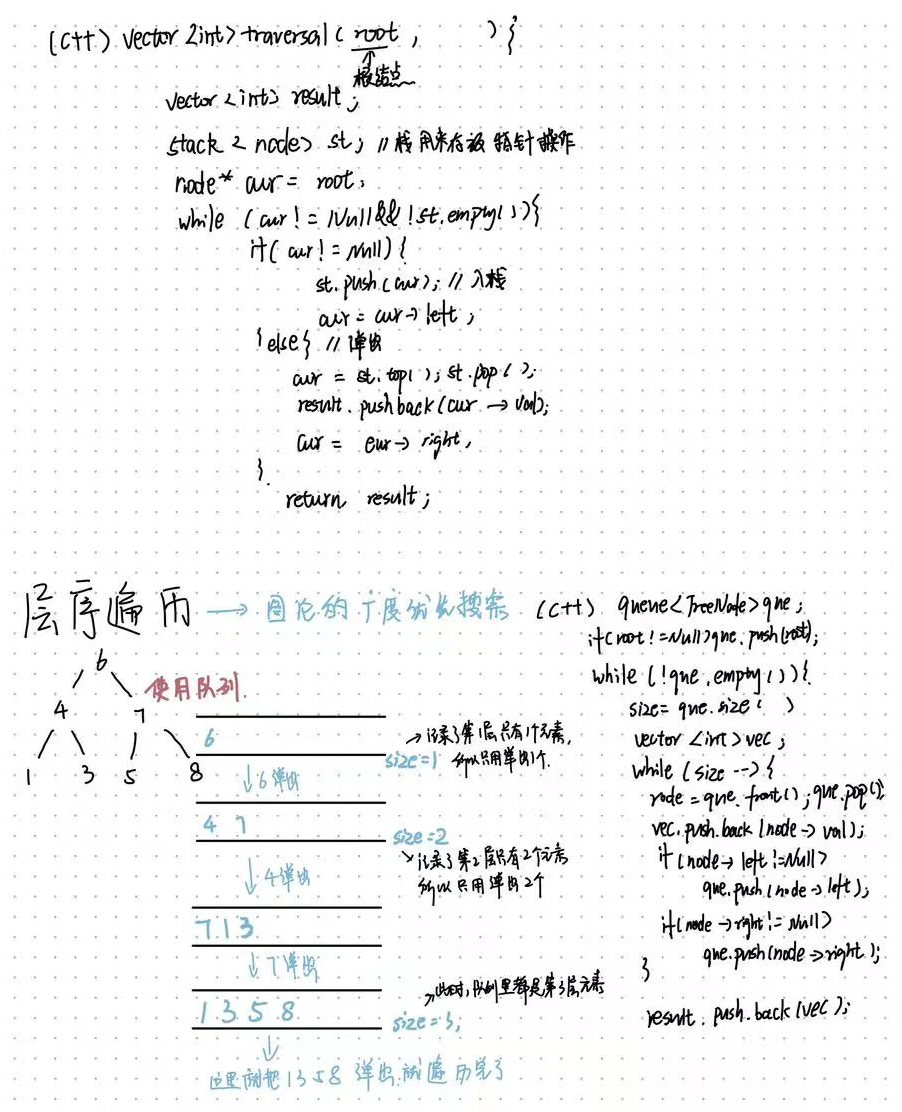 (C++) vector<int> traversal ( root , ) {
根结点
vector <int> result ;
stack < node> st; // 栈用来存放 指针操作
node* cur = root;
while (cur != Null && !st.empty()){
if( cur != Null) {
st.push(cur); // 入栈
cur = cur→left ;
}else{ // 弹出
cur = st.top(); st.pop();
result.pushback(cur → val);
cur = cur → right,
}
return result;
层序遍历 → 图论的广度优先搜索
使用队列.
6
4 7
1 3 5 8
6
size=1
→记录了第1层只有1个元素,
所以只用弹出1个.
↓6弹出
4 7
size=2
↘记录了第2层只有2个元素
所以只用弹出2个
↓4弹出
7 1 3
↓7弹出
1 3 5 8
→此时,队列里都是第3层元素
size = 3,
↓
这里就把1358弹出.就遍历完了
(C++) queue<TreeNode> que ;
if(root != Null) que.push(root);
while (!que.empty()){
size= que.size( )
vector <int> vec ;
while (size --) {
node = que.front() ; que.pop();
vec.push.back (node→val);
if (node→left !=Null)
que.push (node→left);
if(node →right != Null)
que.push(node→right);
}
result. push.back(vec);